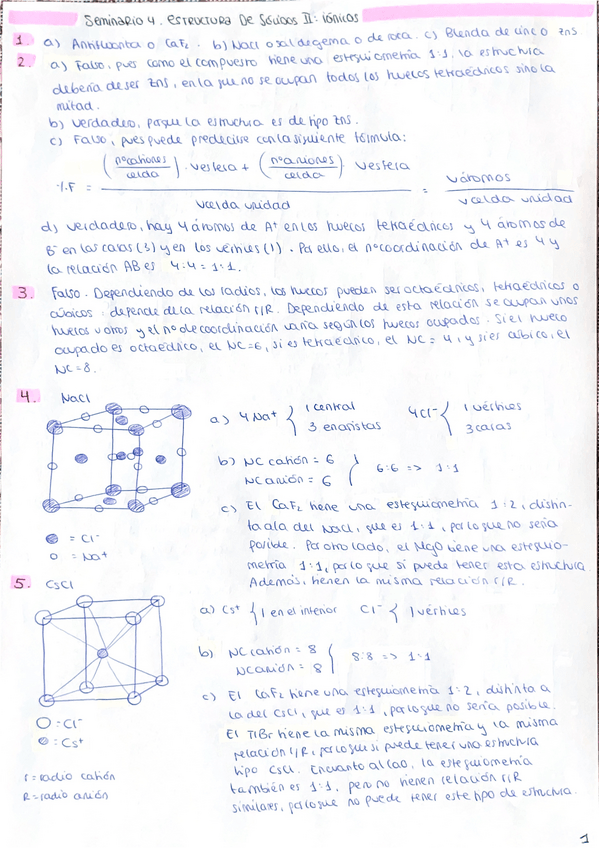 Seminario 4. ESTRUCTURA DE SÓLIDOS II: iónicos
1. a) Antifluorita o CaF2. b) NaCl o sal de gema o de roca. c) Blenda de cinc o ZnS
2. a) Falso, pues como el compuesto tiene una estequiometría 1:1, la estructura
debería de ser ZnS, en la que no se ocupan todos los huecos tetraédricos sino la
mitad.
b) Verdadero, porque la estructura es de tipo ZnS.
c) Falso, pues puede predecirse con la siguiente fórmula:
%F = ((nº cationes / celda) · Vesfera + (nº aniones / celda) Vesfera) / Vcelda unidad = Vátomos / Vcelda unidad
d) Verdadero, hay 4 átomos de A+ en los huecos tetraédricos y 4 átomos de
B- en las caras (3) y en los vértices (1). Por ello, el nº coordinación de A+ es 4 y
la relación AB es 4:4 = 1:1.
3. Falso. Dependiendo de los radios, los huecos pueden ser octaédricos, tetraédricos o
cúbicos: depende de la relación r/R. Dependiendo de esta relación se ocupan unos
huecos u otros y el nº de coordinación varía según los huecos ocupados. Si el hueco
ocupado es octaédrico, el NC=6, si es tetraédrico, el NC = 4, y si es cúbico, el
NC=8.
4. NaCl
a) 4Na+ { 1 central 4Cl- { 1 vértices
3 en aristas 3 caras
b) NC catión = 6
NC anión = 6 } 6:6 => 1:1
c) El CaF2 tiene una estequiometría 1:2, distin-
ta a la del NaCl, que es 1:1, por lo que no sería
posible. Por otro lado, el MgO tiene una estequio-
metría 1:1, por lo que sí puede tener esta estructura
Además, tienen la misma relación r/R.
= Cl-
= Na+
5. CsCl
a) Cs+ { 1 en el interior Cl- { 1 vértices
b) NC catión = 8
NC anión = 8 } 8:8 => 1:1
c) El CaF2 tiene una estequiometría 1:2, distinta a
la del CsCl, que es 1:1, por lo que no sería posible.
El TlBr tiene la misma estequiometría y la misma
relación r/R, por lo que sí puede tener una estructura
tipo CsCl. En cuanto al CaO, la estequiometría
también es 1:1, pero no tienen relación r/R
similares, por lo que no puede tener este tipo de estructura.
: Cl-
: Cs+
r = radio catión
R = radio anión
1